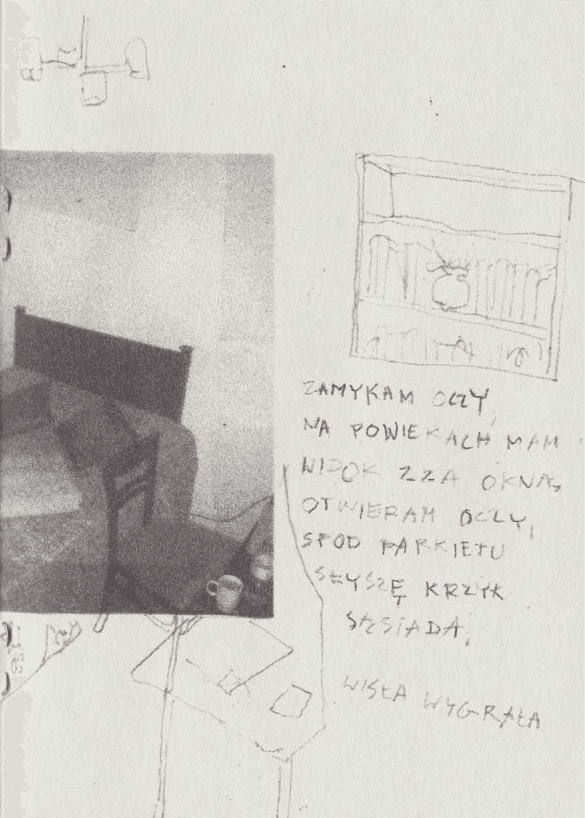 ZAMYKAM OCZY,
NA POWIEKACH MAM
WIDOK ZZA OKNA,
OTWIERAM OCZY,
SPOD PARKIETU
SŁYSZĘ KRZYK
SĄSIADA,
WISŁA WYGRAŁA